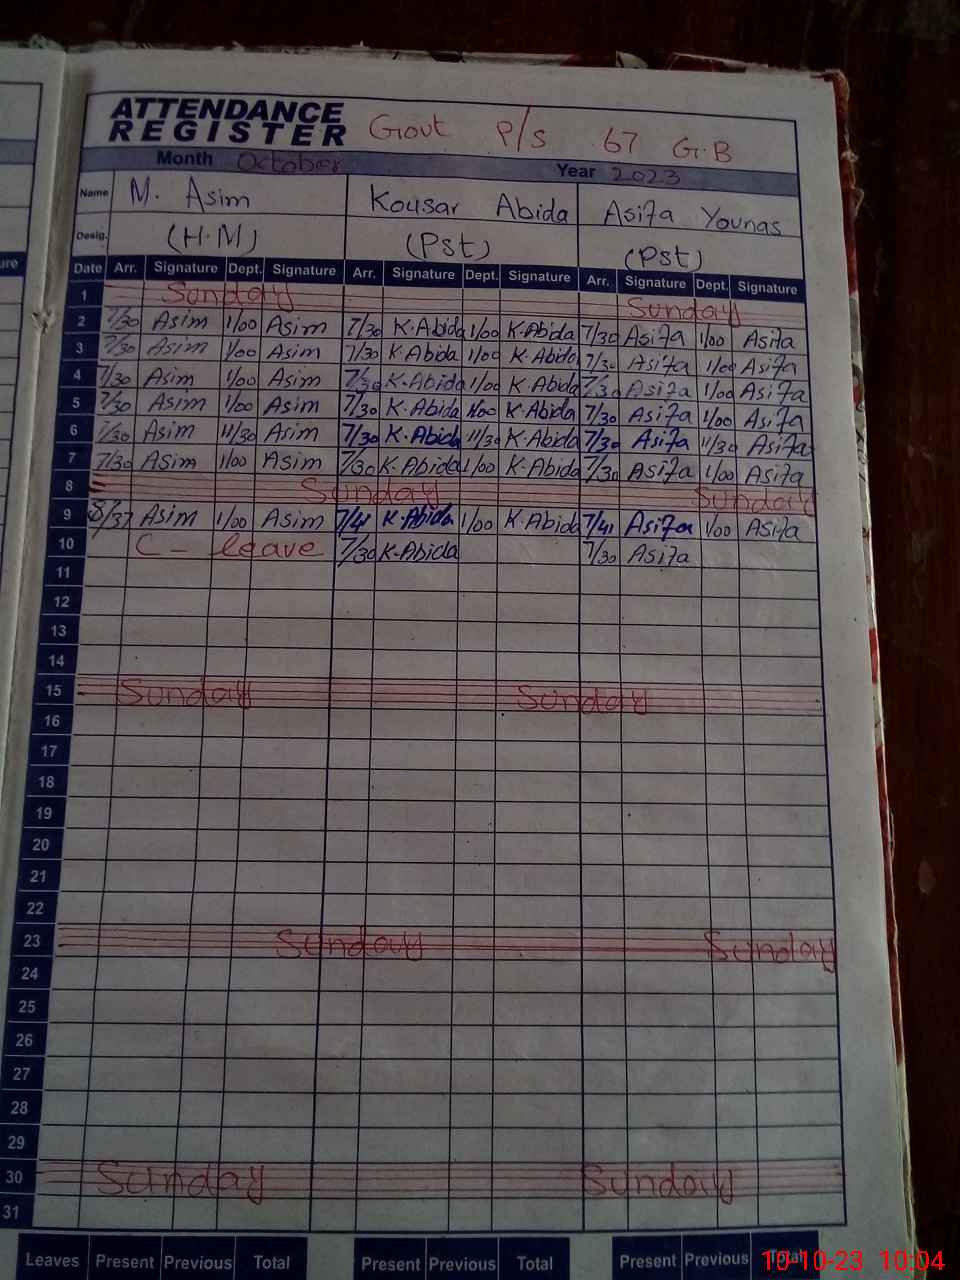 ATTENDANCE
REGISTER Govt P/S 67 G.B
Month October Year 2023
Name M. Asim Kousar Abida Asifa Younas
Desig. (H.M) (Pst) (Pst)
Date Arr. Signature Dept. Signature Arr. Signature Dept. Signature Arr. Signature Dept. Signature
1 Sunday Sunday
2 7/30 Asim 1/00 Asim 7/30 K.Abida 1/00 K.Abida 7/30 Asifa 1/00 Asifa
3 7/30 Asim 1/00 Asim 7/30 K.Abida 1/00 K.Abida 7/30 Asifa 1/00 Asifa
4 7/30 Asim 1/00 Asim 7/30 K.Abida 1/00 K.Abida 7/30 Asifa 1/00 Asifa
5 7/30 Asim 1/00 Asim 7/30 K.Abida 1/00 K.Abida 7/30 Asifa 1/00 Asifa
6 7/30 Asim 11/30 Asim 7/30 K.Abida 11/30 K.Abida 7/30 Asifa 11/30 Asifa
7 7/30 Asim 1/00 Asim 7/30 K.Abida 1/00 K.Abida 7/30 Asifa 1/00 Asifa
8 Sunday Sunday
9 8/37 Asim 1/00 Asim 7/41 K.Abida 1/00 K.Abida 7/41 Asifa 1/00 Asifa
10 C - leave 7/30 K.Abida 7/30 Asifa
11
12
13
14
15 Sunday Sunday
16
17
18
19
20
21
22
23 Sunday Sunday
24
25
26
27
28
29
30 Sunday Sunday
31
Leaves Present Previous Total Present Previous Total Present Previous Total
10-10-23 10:04